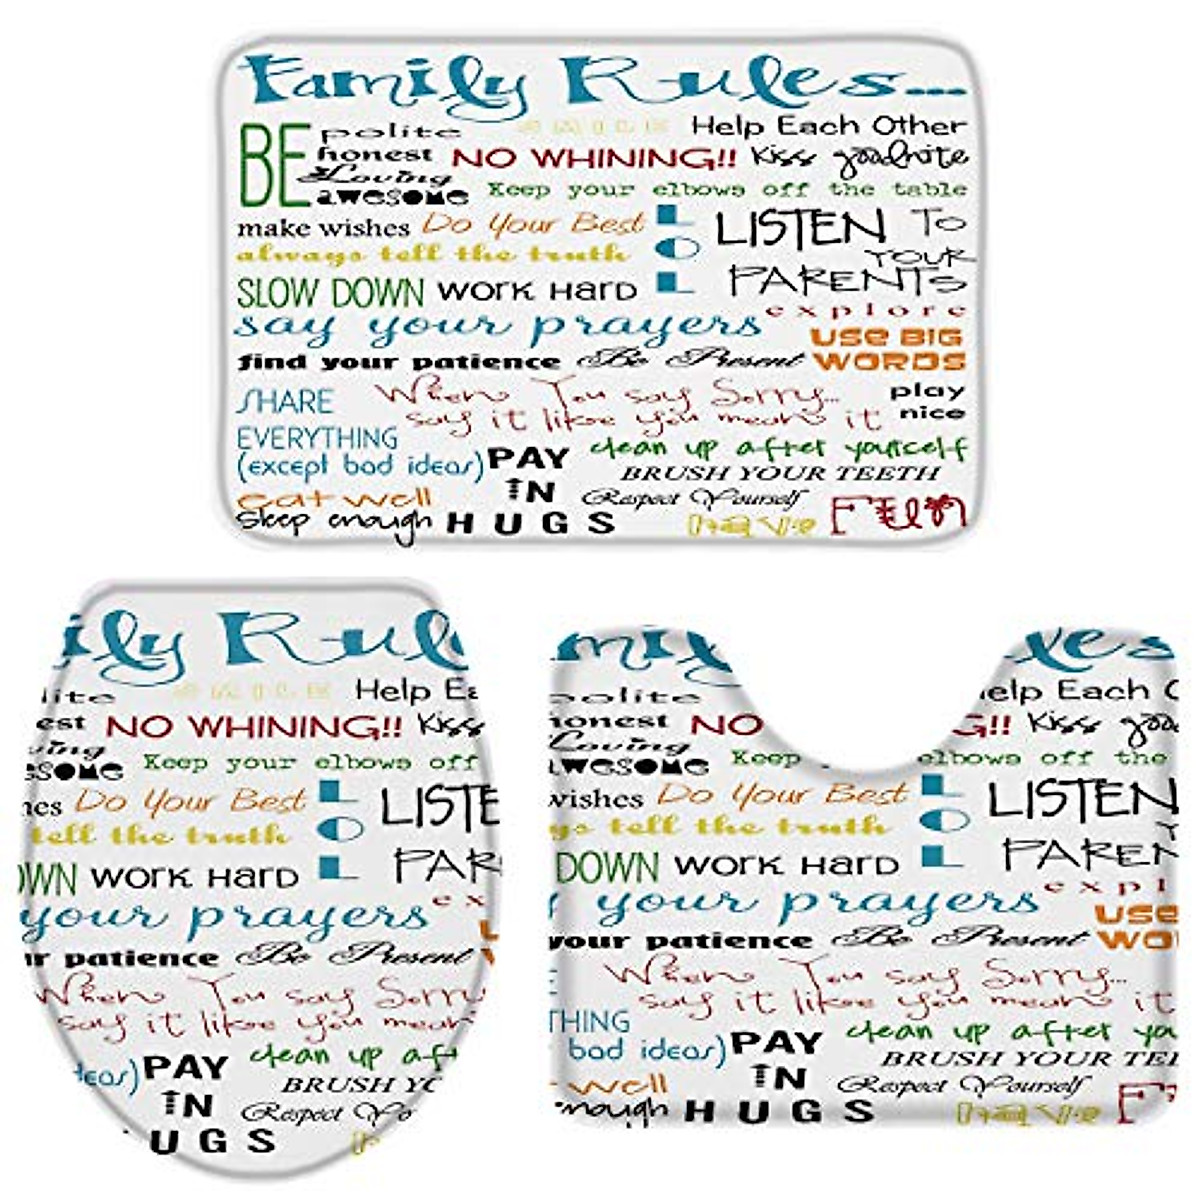 Family Rules...
BE polite SMILE Help Each Other
honest NO WHINING!! Kiss goodnite
Loving
awesome Keep your elbows off the table
make wishes Do Your Best LOL LISTEN To
always tell the truth YOUR
SLOW DOWN WORK HARD PARENTS
explore
say your prayers USE BIG
find your patience Be Present WORDS
SHARE When You say Sorry... play
say it like you mean it nice
EVERYTHING clean up after yourself
(except bad ideas) PAY BRUSH YOUR TEETH
eat well IN Respect Yourself
sleep enough HUGS have Fun
ily Rul
lite SMILE Help Ea
est NO WHINING!! Kiss
ving
esome Keep your elbows off
hes Do Your Best LOL LISTE
tell the truth
OWN WORK HARD PAR
ex
your prayers U
ur patience Be Present W
When You say Sorry
say it like you mean
clean up aft
deas) PAY BRUSH YO
IN Respect Yo
UGS h
mily les
polite elp Each O
honest NO G!! Kiss good
Loving
awesome Keep elbows off the
wishes Do Your Best LOL LISTEN
ys tell the truth Y
DOWN WORK HARD PAREN
expl
y your prayers USE
your patience Be Present WO
E When You say Sorry...
say it like you mean it
THING clean up after yo
bad ideas) PAY BRUSH YOUR TEE
well IN Respect Yourself
enough HUGS have F